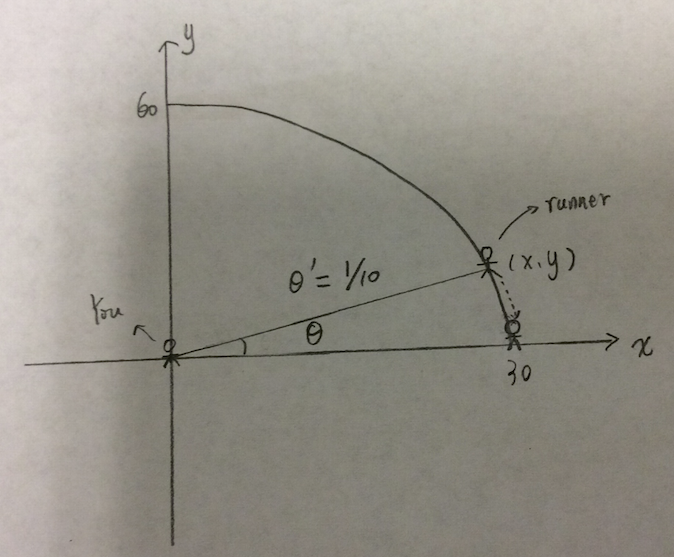 y
60
runner
(x.y)
θ' = 1/10
You
θ
x
30